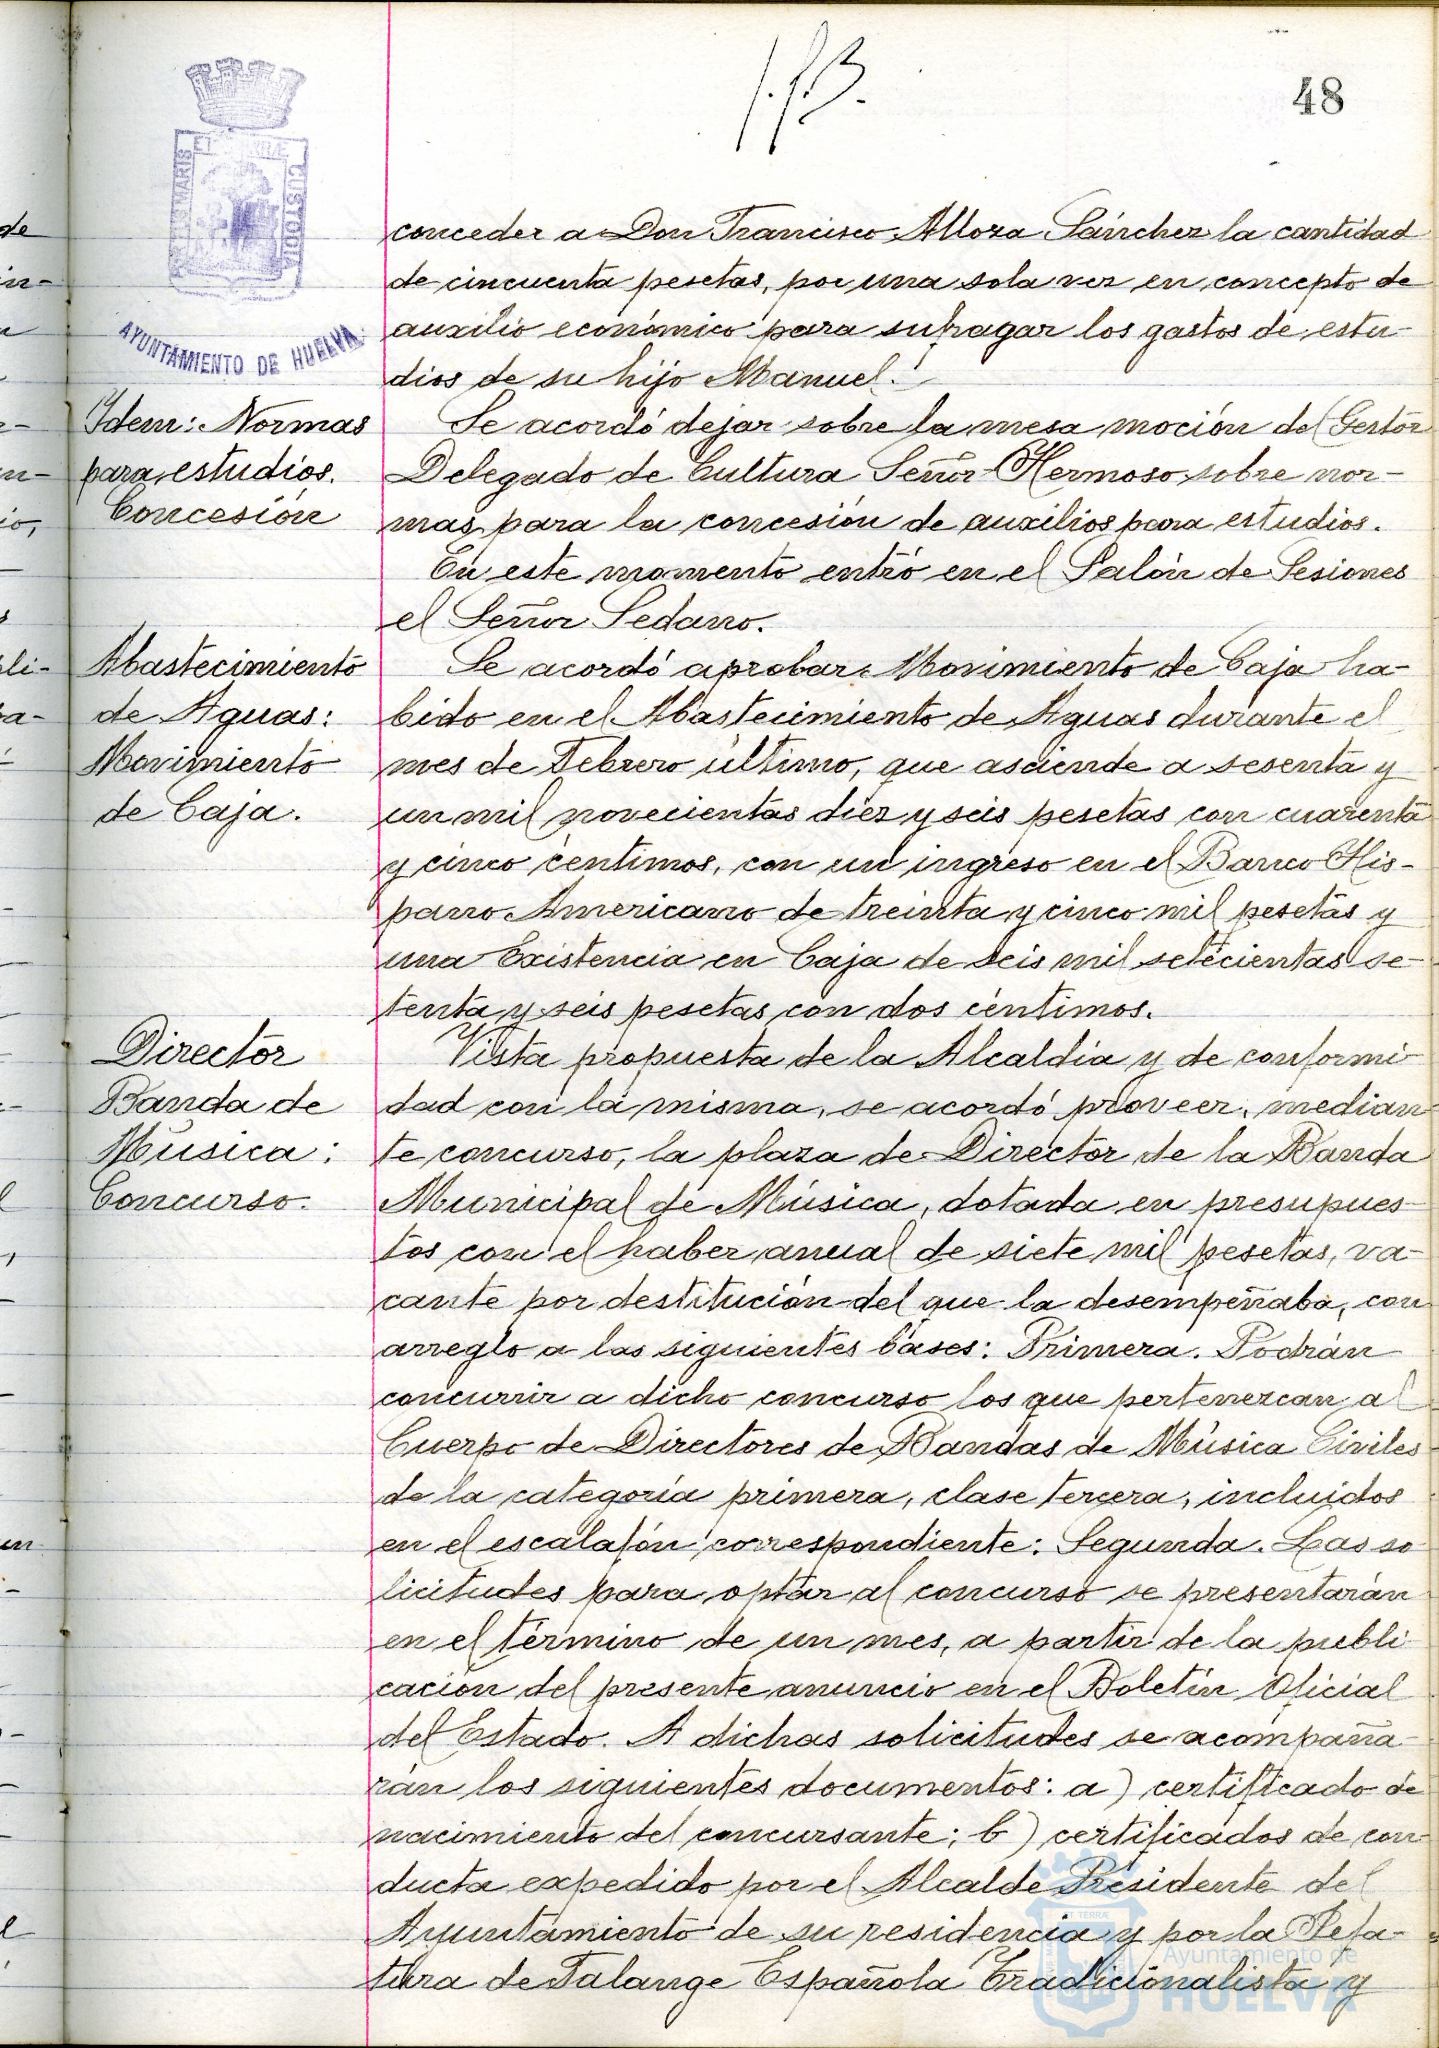 48
PORTUS MARIS ET TERRÆ CUSTODIA
AYUNTAMIENTO DE HUELVA
conceder a Don Francisco Alloza Sánchez la cantidad
de cincuenta pesetas, por una sola vez en concepto de
auxilio económico para sufragar los gastos de estu-
dios de su hijo Manuel.
Idem: Normas
para estudios.
Concesión
Se acordó dejar sobre la mesa moción del Gestor
Delegado de Cultura Señor Hermoso sobre nor-
mas para la concesión de auxilios para estudios.
En este momento entró en el Salón de Sesiones
el Señor Sedano.
Abastecimiento
de Aguas:
Movimiento
de Caja.
Se acordó aprobar Movimiento de Caja ha-
bido en el Abastecimiento de Aguas durante el
mes de Febrero último, que asciende a sesenta y
un mil novecientas diez y seis pesetas con cuarenta
y cinco céntimos, con un ingreso en el Banco His-
pano Americano de treinta y cinco mil pesetas y
una Existencia en Caja de seis mil setecientas se-
tenta y seis pesetas con dos céntimos.
Director
Banda de
Música:
Concurso.
Vista propuesta de la Alcaldía y de conformi-
dad con la misma, se acordó proveer, median-
te concurso, la plaza de Director de la Banda
Municipal de Música, dotada en presupues-
tos con el haber anual de siete mil pesetas, va-
cante por destitución del que la desempeñaba, con
arreglo a las siguientes bases: Primera. Podrán
concurrir a dicho concurso los que pertenezcan al
Cuerpo de Directores de Bandas de Música Civiles
de la categoría primera, clase tercera, incluidos
en el escalafón correspondiente: Segunda. Las so
licitudes para optar al concurso se presentarán
en el término de un mes, a partir de la publi
cación del presente anuncio en el Boletín Oficial
del Estado. A dichas solicitudes se acompaña-
rán los siguientes documentos: a) certificado de
nacimiento del concursante; b) certificados de con-
ducta expedido por el Alcalde Presidente del
Ayuntamiento de su residencia y por la Jefa-
tura de Falange Española Tradicionalista y
Ayuntamiento de
HUELVA